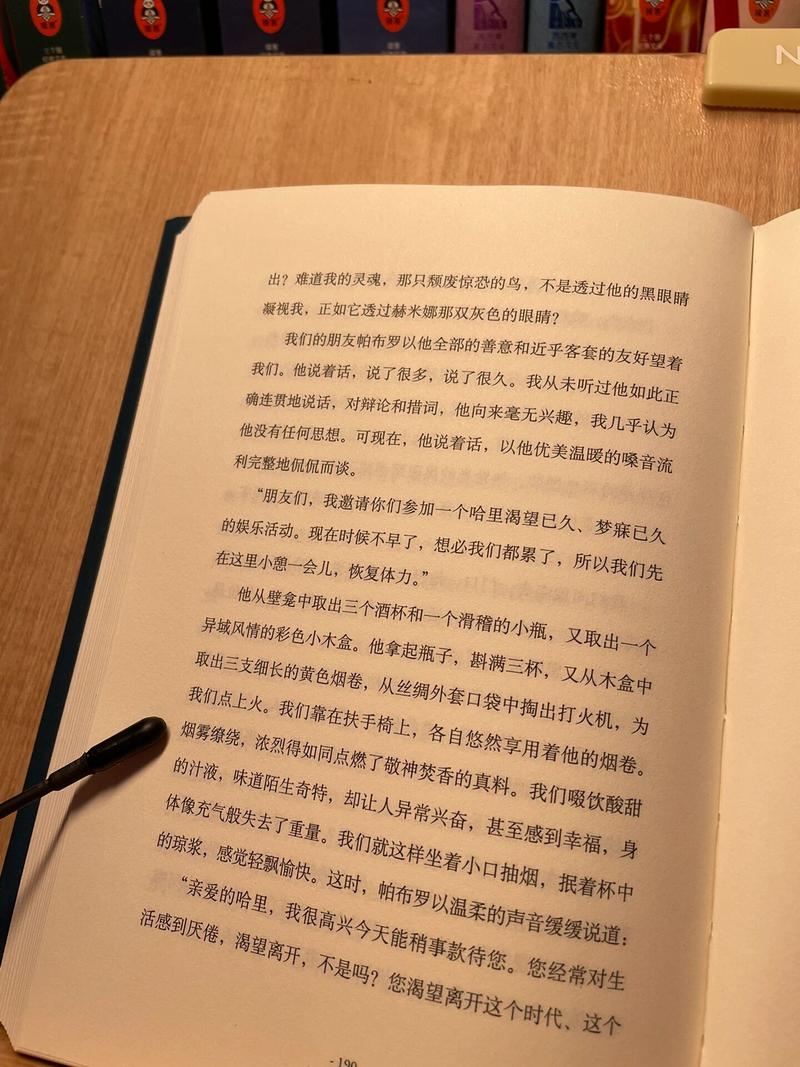 出？难道我的灵魂，那只颓废惊恐的鸟，不是透过他的黑眼睛
凝视我，正如它透过赫米娜那双灰色的眼睛？
我们的朋友帕布罗以他全部的善意和近乎客套的友好望着
我们。他说着话，说了很多，说了很久。我从未听过他如此正
确连贯地说话，对辩论和措词，他向来毫无兴趣，我几乎认为
他没有任何思想。可现在，他说着话，以他优美温暖的嗓音流
利完整地侃侃而谈。
“朋友们，我邀请你们参加一个哈里渴望已久、梦寐已久
的娱乐活动。现在时候不早了，想必我们都累了，所以我们先
在这里小憩一会儿，恢复体力。”
他从壁龛中取出三个酒杯和一个滑稽的小瓶，又取出一个
异域风情的彩色小木盒。他拿起瓶子，斟满三杯，又从木盒中
取出三支细长的黄色烟卷，从丝绸外套口袋中掏出打火机，为
我们点上火。我们靠在扶手椅上，各自悠然享用着他的烟卷。
烟雾缭绕，浓烈得如同点燃了敬神焚香的真料。我们啜饮酸甜
的汁液，味道陌生奇特，却让人异常兴奋，甚至感到幸福，身
体像充气般失去了重量。我们就这样坐着小口抽烟，抿着杯中
的琼浆，感觉轻飘愉快。这时，帕布罗以温柔的声音缓缓说道：
“亲爱的哈里，我很高兴今天能稍事款待您。您经常对生
活感到厌倦，渴望离开，不是吗？您渴望离开这个时代、这个
- 190